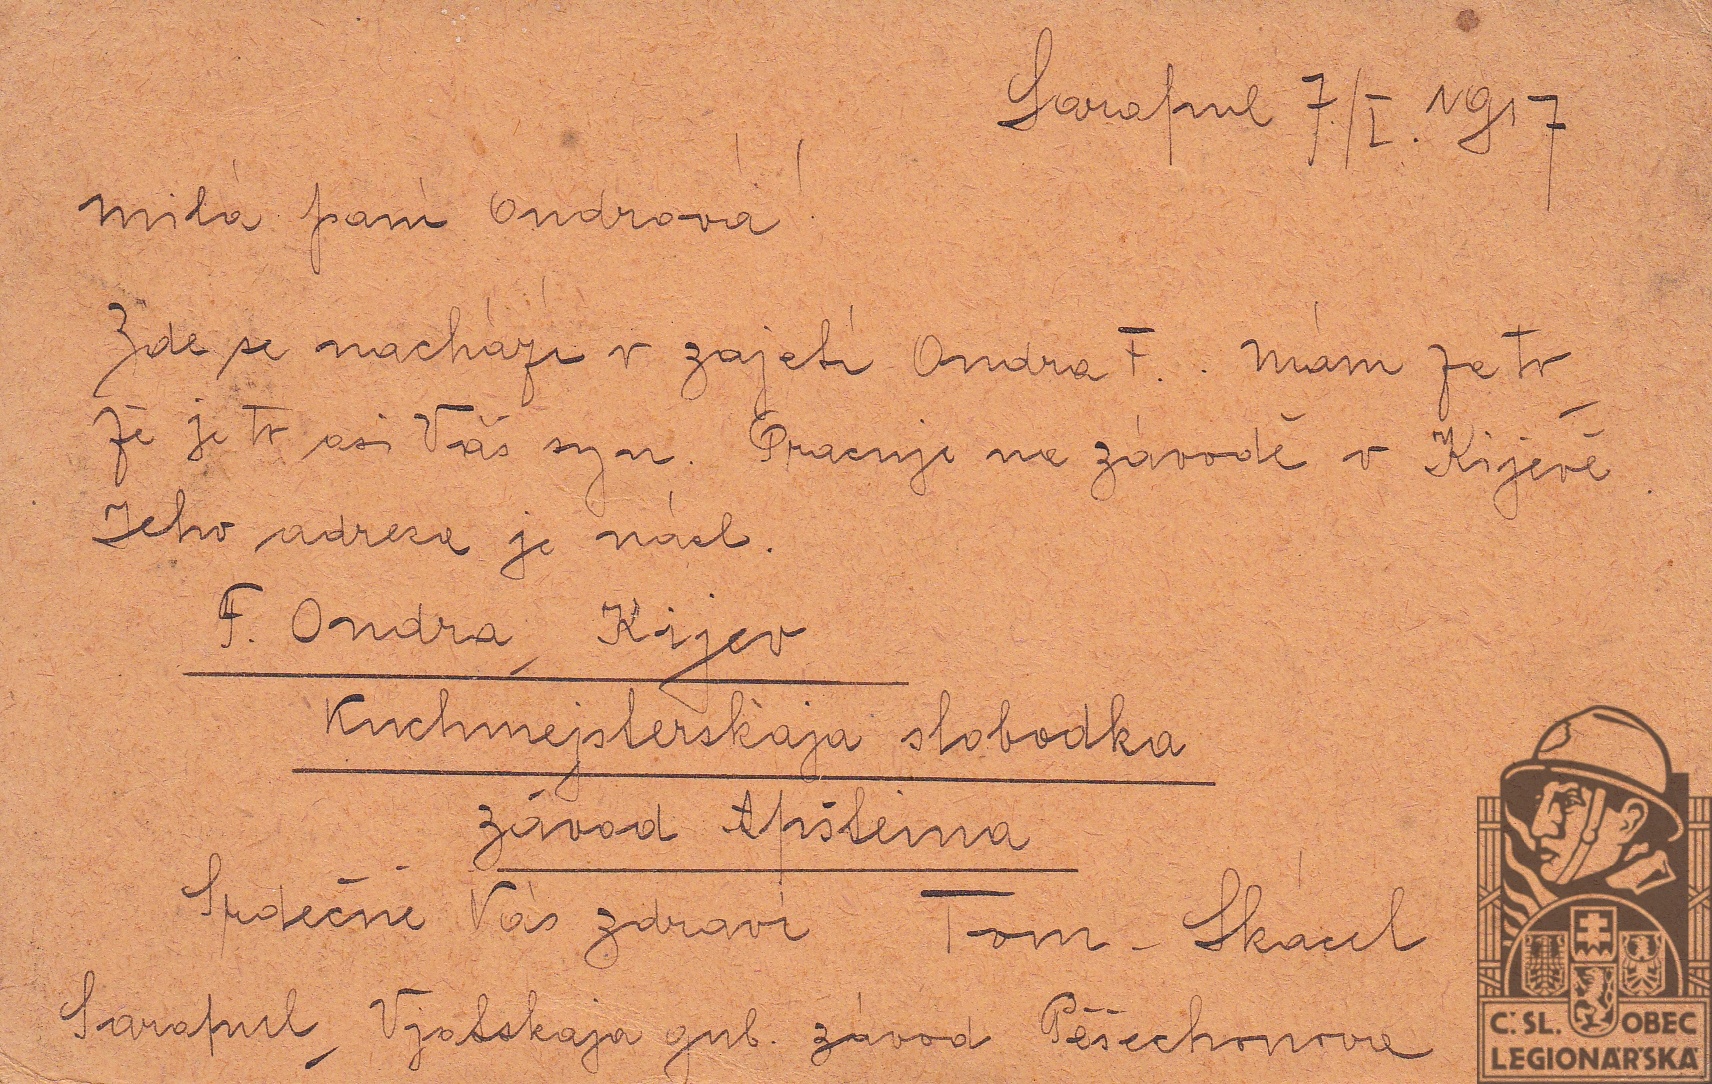 Sarapul 7./I. 1917
Milá paní Ondrová!
Zde se nachází v zajetí Ondra F. Mám za to,
že je to asi Váš syn. Pracuje na závodě v Kijevě.
Jeho adresa je násl.
F. Ondra, Kijev
Kuchmejsterskaja slobodka
závod Apšteina
Srdečně Vás zdraví Tom. Skácel
Sarapul, Vjatskaja gub. závod Pěšechonova
Č.SL. OBEC
LEGIONÁŘSKÁ